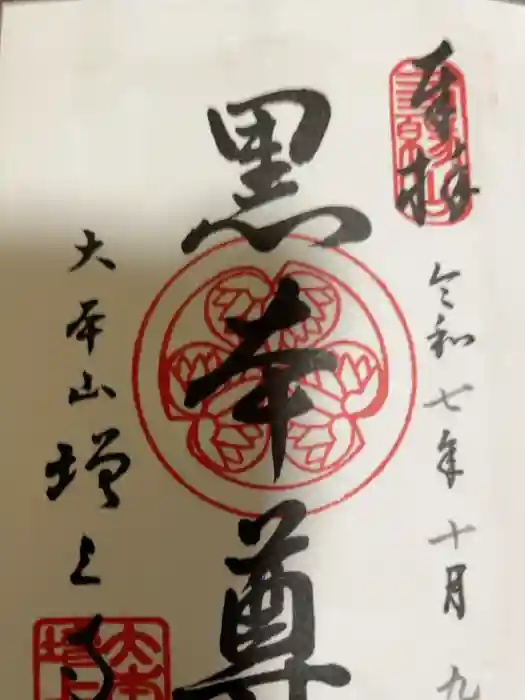 奉拝
令和七年十月九
黒本尊
大本山増上寺